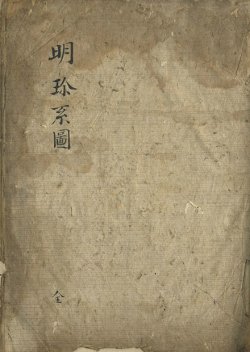 明珍系圖
全